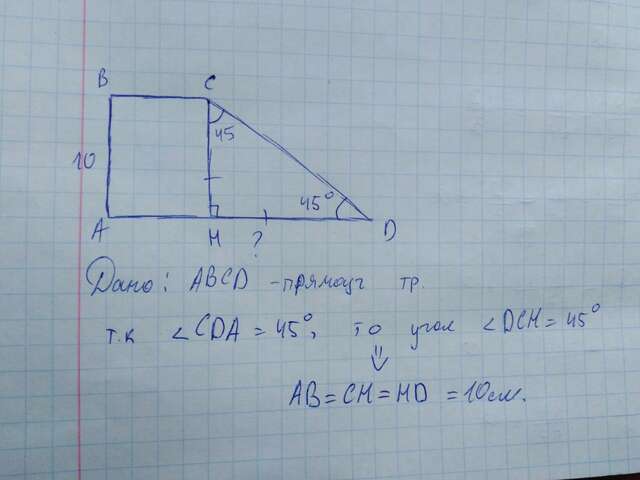 B C
45
10
45°
A H D
?
Дано: ABCD - прямоуг тр.
т.к ∠CDA = 45°, то угол ∠DCH = 45°
⇓
AB = CH = HD = 10см.